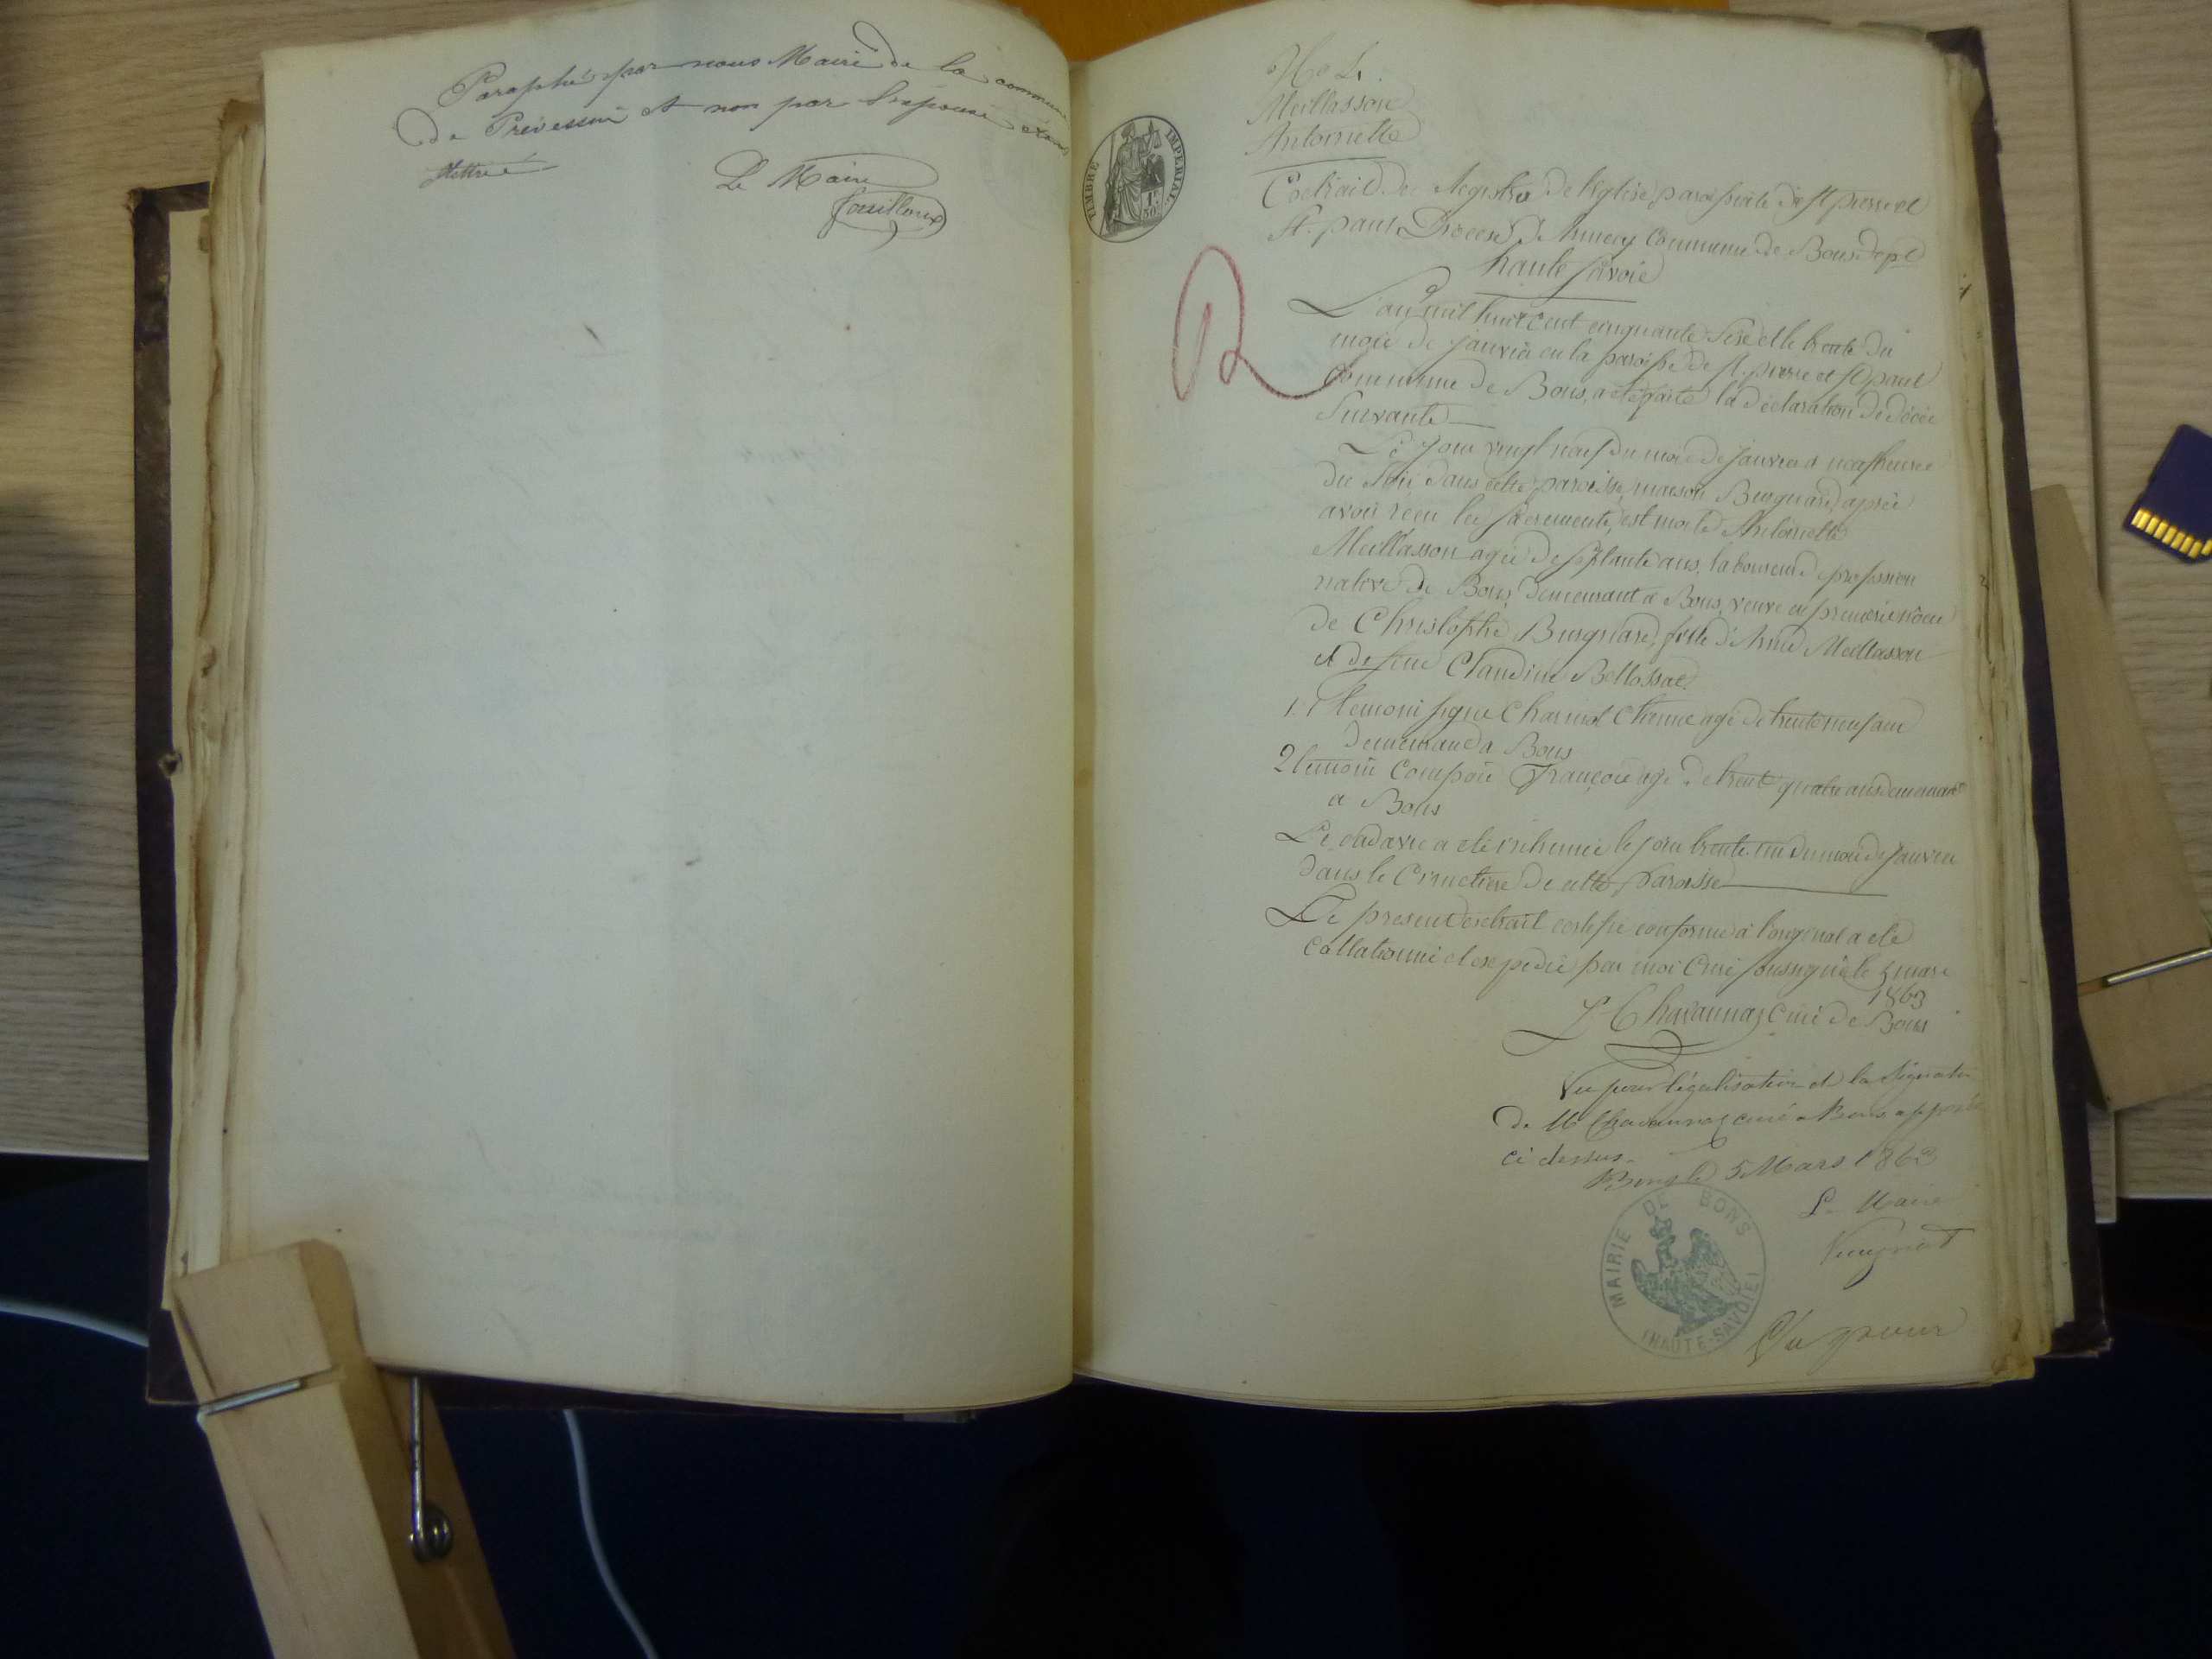 Paraphé par nous Maire de la commune
de Prévessin et non par l'épouse
illettrée
Le Maire
Fouilloux
TIMBRE IMPERIAL
1F
50C
Meillasson
Antoinette
Extrait du Registre de l'église paroissiale de St pierre et
St. paul Diocese d'Annecy Commune de Bons dept
haute Savoie
L'an mil huit cent cinquante Sixe et le trente du
mois de janvier en la paroisse de St. pierre et St paul
Commune de Bons, a été faite la déclaration de décès
Suivante
Le jour vingt neuf du mois de janvier a neuf heures
du soir dans cette paroisse, maison Burgniard, après
avoir reçu les sacrements, est morte Antoinette
Meillasson agée de septante ans, laboureur de profession
native de Bons, demeurant à Bons, veuve en premiere noce
de Christophe Burgniard, fille d'Aimé Meillasson
et de feue Claudine Bellossat
1r temoin signé Charmot Etienne agé de trente neuf ans
demeurant a Bons
2 temoin Compois François age de trente quatre ans demeurant
a Bons
Le cadavre a été inhumé le jour trente un du mois de janvier
dans le Cimetiere de cette paroisse
Le present extrait certifié conforme à l'original a été
Collationné et expedié par moi Curé soussigné le 5 mars
1863
Chavannaz Curé de Bons
Vu pour légalisation de la Signature
de Mr Chavannaz curé a Bons apposée
ci dessus.
Bons le 5 Mars 1863
Le Maire
MAIRIE DE BONS
(HAUTE-SAVOIE)
Vu pour